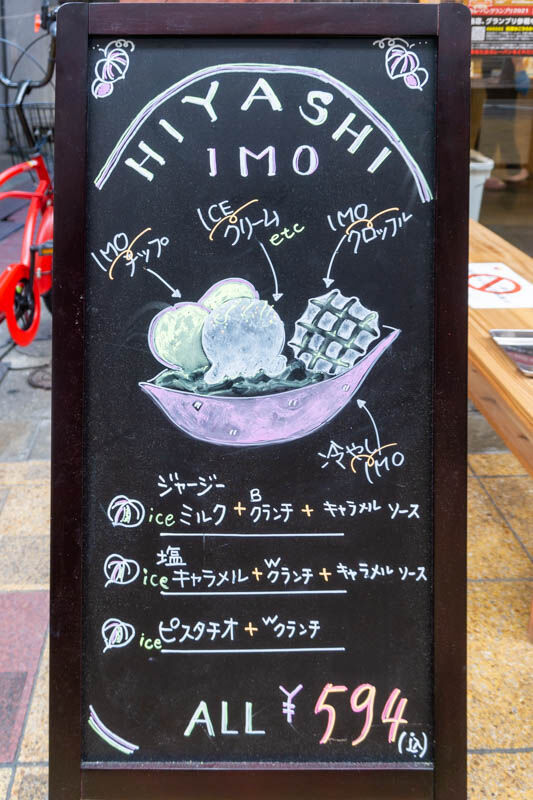 HIYASHI
IMO
IMO チップ
ICE クリーム etc
IMO クロッフル
冷やし IMO
ジャージー
ice ミルク + B クランチ + キャラメル ソース
塩
ice キャラメル + W クランチ + キャラメル ソース
ice ピスタチオ + W クランチ
ALL ¥594 (込)